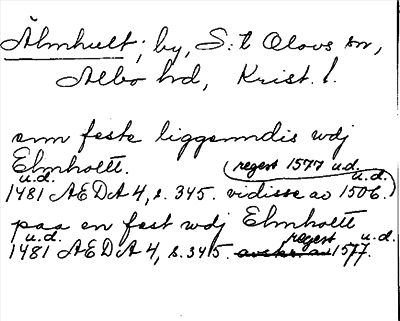 Älmhult, by, S:t Olovs sn,
Albo hd, Krist. l.
em feste liggenndis wdj
Elmhollt. (regest 1577 u.d.
u.d. u.d.
1481 ÆDA 4, s. 345. vidisse av 1506.)
paa en fest wdj Elmholtt
u.d. regest u.d.
1481 ÆDA 4, s. 345. avskr. av 1577.